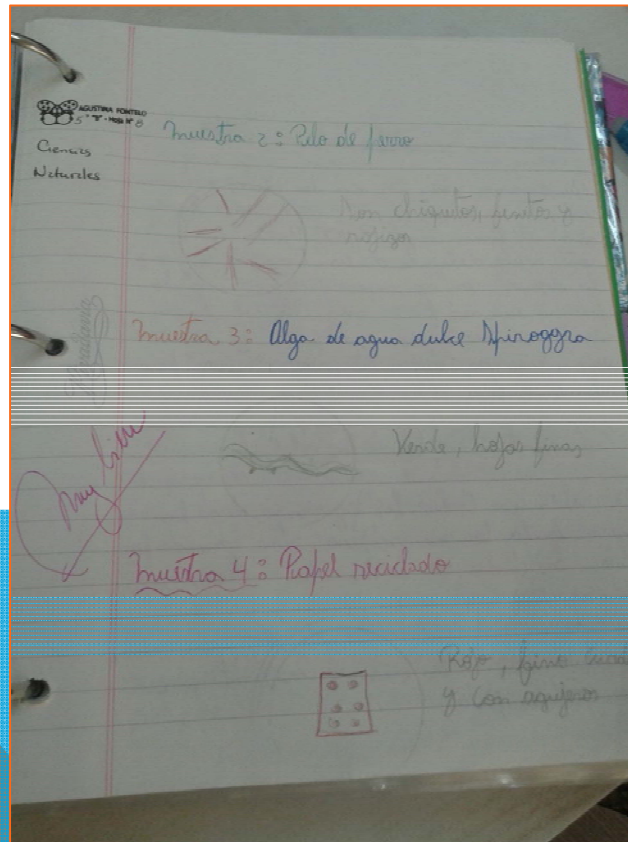 AGUSTINA FONTELO
5° "B" - HOJA N° 8
Ciencias
Naturales
Muestra 2: Pelo de perro
Son chiquitos, finitos y
rojizos
Muestra 3: Alga de agua dulce Spiroggra
Verde, hojas finas
Muy bien
Muestra 4: Papel reciclado
Rojo, fino
y con agujeros